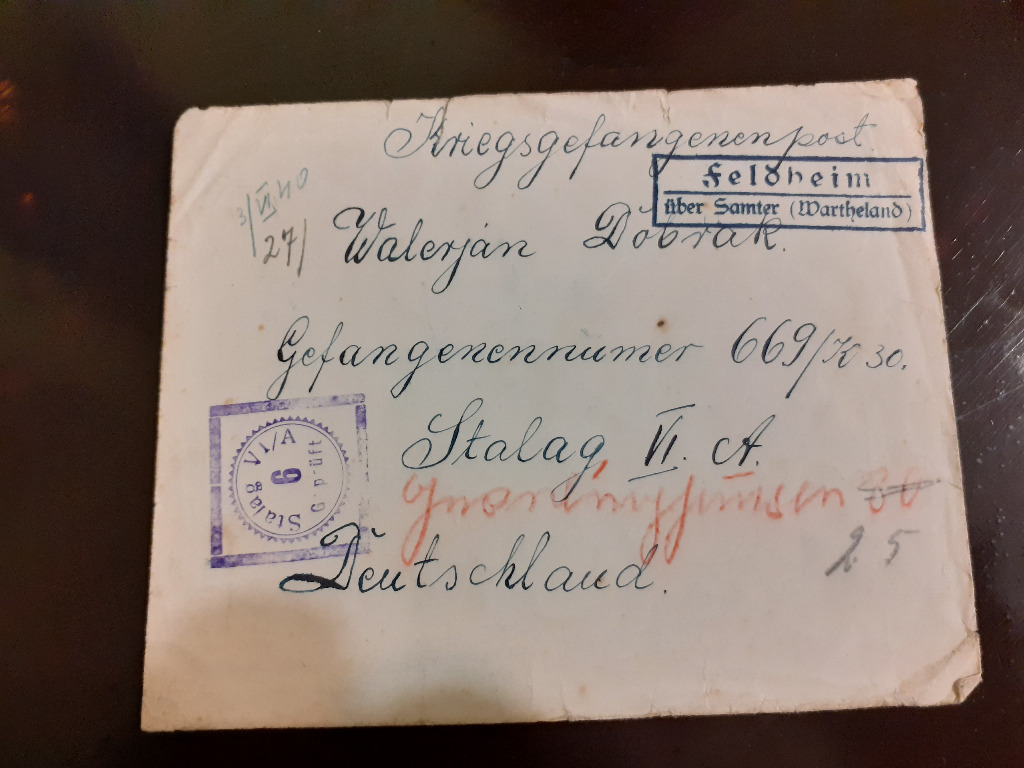 Kriegsgefangenenpost.
Feldheim
über Samter (Wartheland)
3/VI 40
27/
Walerjan Dobrak.
Gefangenennumer 669/K 30.
Stalag VI/A
6
Geprüft
Stalag VI. A.
2.5
Deutschland.